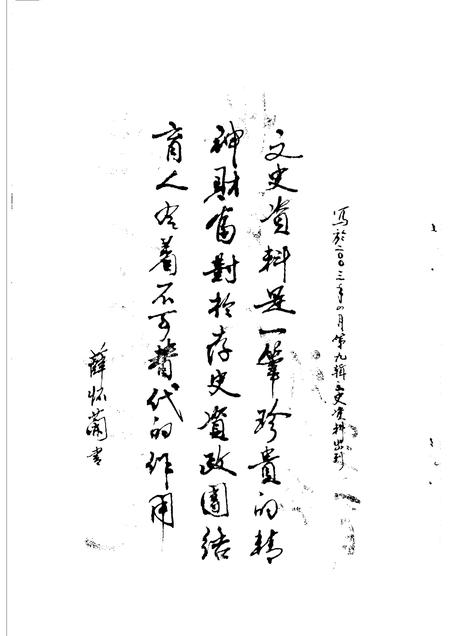 寫於二〇〇三年四月第九輯文史资料出刊
文史資料是一筆珍貴的精
神財富對於存史資政團结
育人有着不可替代的作用
薛怀蘭書